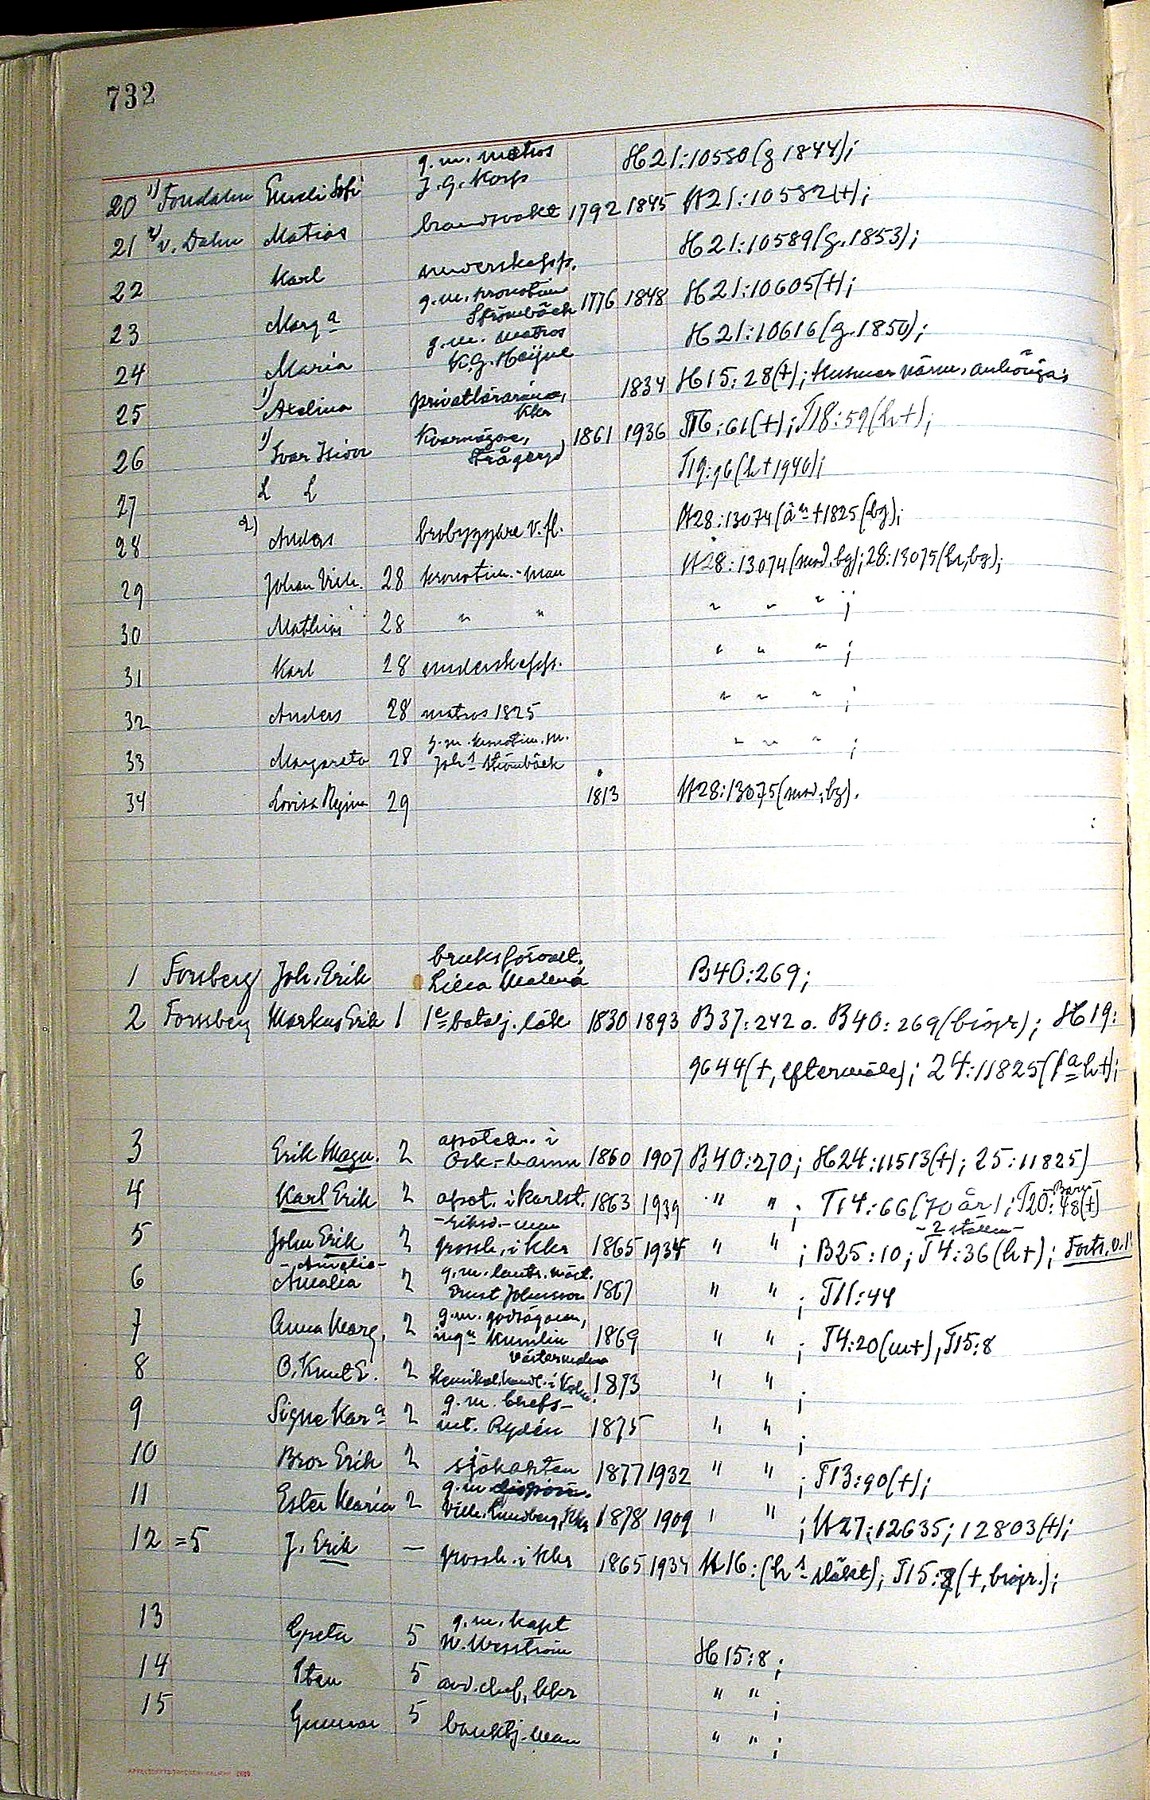 732
g.m. matros H21:10580(g 1844);
20 1) Fondahn Emeli Sofi J.G. Korps
21 2) v. Dahn Matias brandvakt 1792 1845 H21:10582(+);
22 Karl underskepps. H21:10589(g.1853);
23 Marg a g.m. kronotim Strömbäck 1776 1848 H21:10605(+);
24 Maria g.m. matros K.G. Heijne H21:10616(g.1850);
25 1) Axelina privatlärarinna, Kkr 1834 H15:28(+);
26 1) Ivar Isidor Kvarnägare, Trågeryd 1861 1936 T16:61(+); T18:59(h+);
27 T19:96(h+1940);
28 2) Anders brobyggare v. fl. H28:13074(än+1825(bg);
29 Johan Vilh. 28 kronotim.-man H28:13074(med.bg); 28:13075(h,bg);
30 Mathias 28 " " " " " ;
31 Karl 28 underskepps. " " " ;
32 Anders 28 matros 1825 " " " ;
33 Margareta 28 g.m. kronotim.m. Joh s Strömbäck " " " ;
34 Lovisa Regina 29 1813 H28:13075(med.bg).
1 Forsberg Joh. Erik bruksförvalt. Lilla Malma B40:269;
2 Forssberg Markus Erik 1 1e batalj. läk. 1830 1893 B37:242 o. B40:269(biogr); H19:
9644(+, eftermäle); 24:11825(fa h+);
3 Erik Magn. 2 apotek. i Osk-hamn 1860 1907 B40:270; H24:11513(+); 25:11825)
4 Karl Erik 2 apot. i Karlst. 1863 1939 " " ; T14:66(70 år); T20:48(+)
-riksd.-man -2 ställen-
5 John Erik 2 grossh. i Kkr 1865 1934 " " ; B25:10; T4:36(h+); Forts. o. 12
-Amalia-
6 Amalia 2 g.m. lants.mäst. Ernst Johnsson 1867 " " ; T11:44
7 Anna Marg. 2 g.m. godsägaren, ingr Kumlin 1869 " " ; T4:20(m+), T15:8
8 O. Knut E. 2 Kemikal.handl. i 1873 " " ;
9 Signe Kar a 2 g.m. brefs- int. Rydén 1875 " " ;
10 Bror Erik 2 sjökapten 1877 1932 " " ; T13:90(+);
11 Ester Maria 2 g.m. dispon. Vilh. Lundberg, Kkr 1878 1909 " " ; H27:12635; 12803(+);
12 =5 J. Erik — grossh. i Kkr 1865 1934 H16:(hs släkt); T15:8(+, biogr.);
13 Greta 5 g.m. kapt W. Wesström H15:8;
14 Sten 5 avd.chef, Kkr " " ;
15 Gunnar 5 banktj.-man " " ;